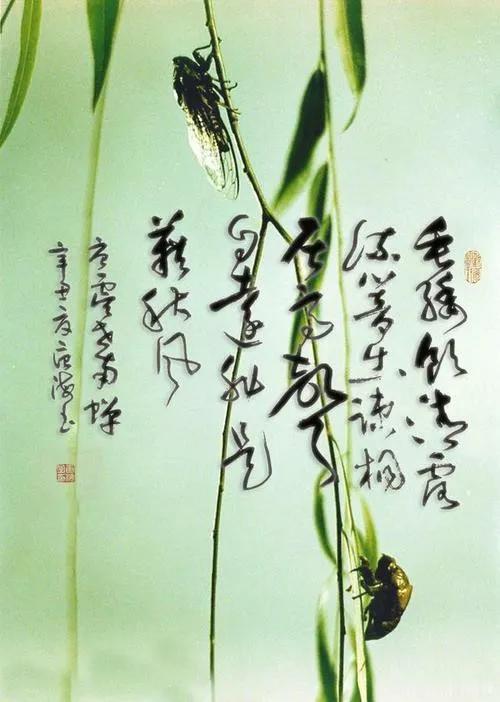 垂緌飲清露
流響出疎桐
居高聲
自遠非是
藉秋風
唐虞世南蟬
辛丑夏